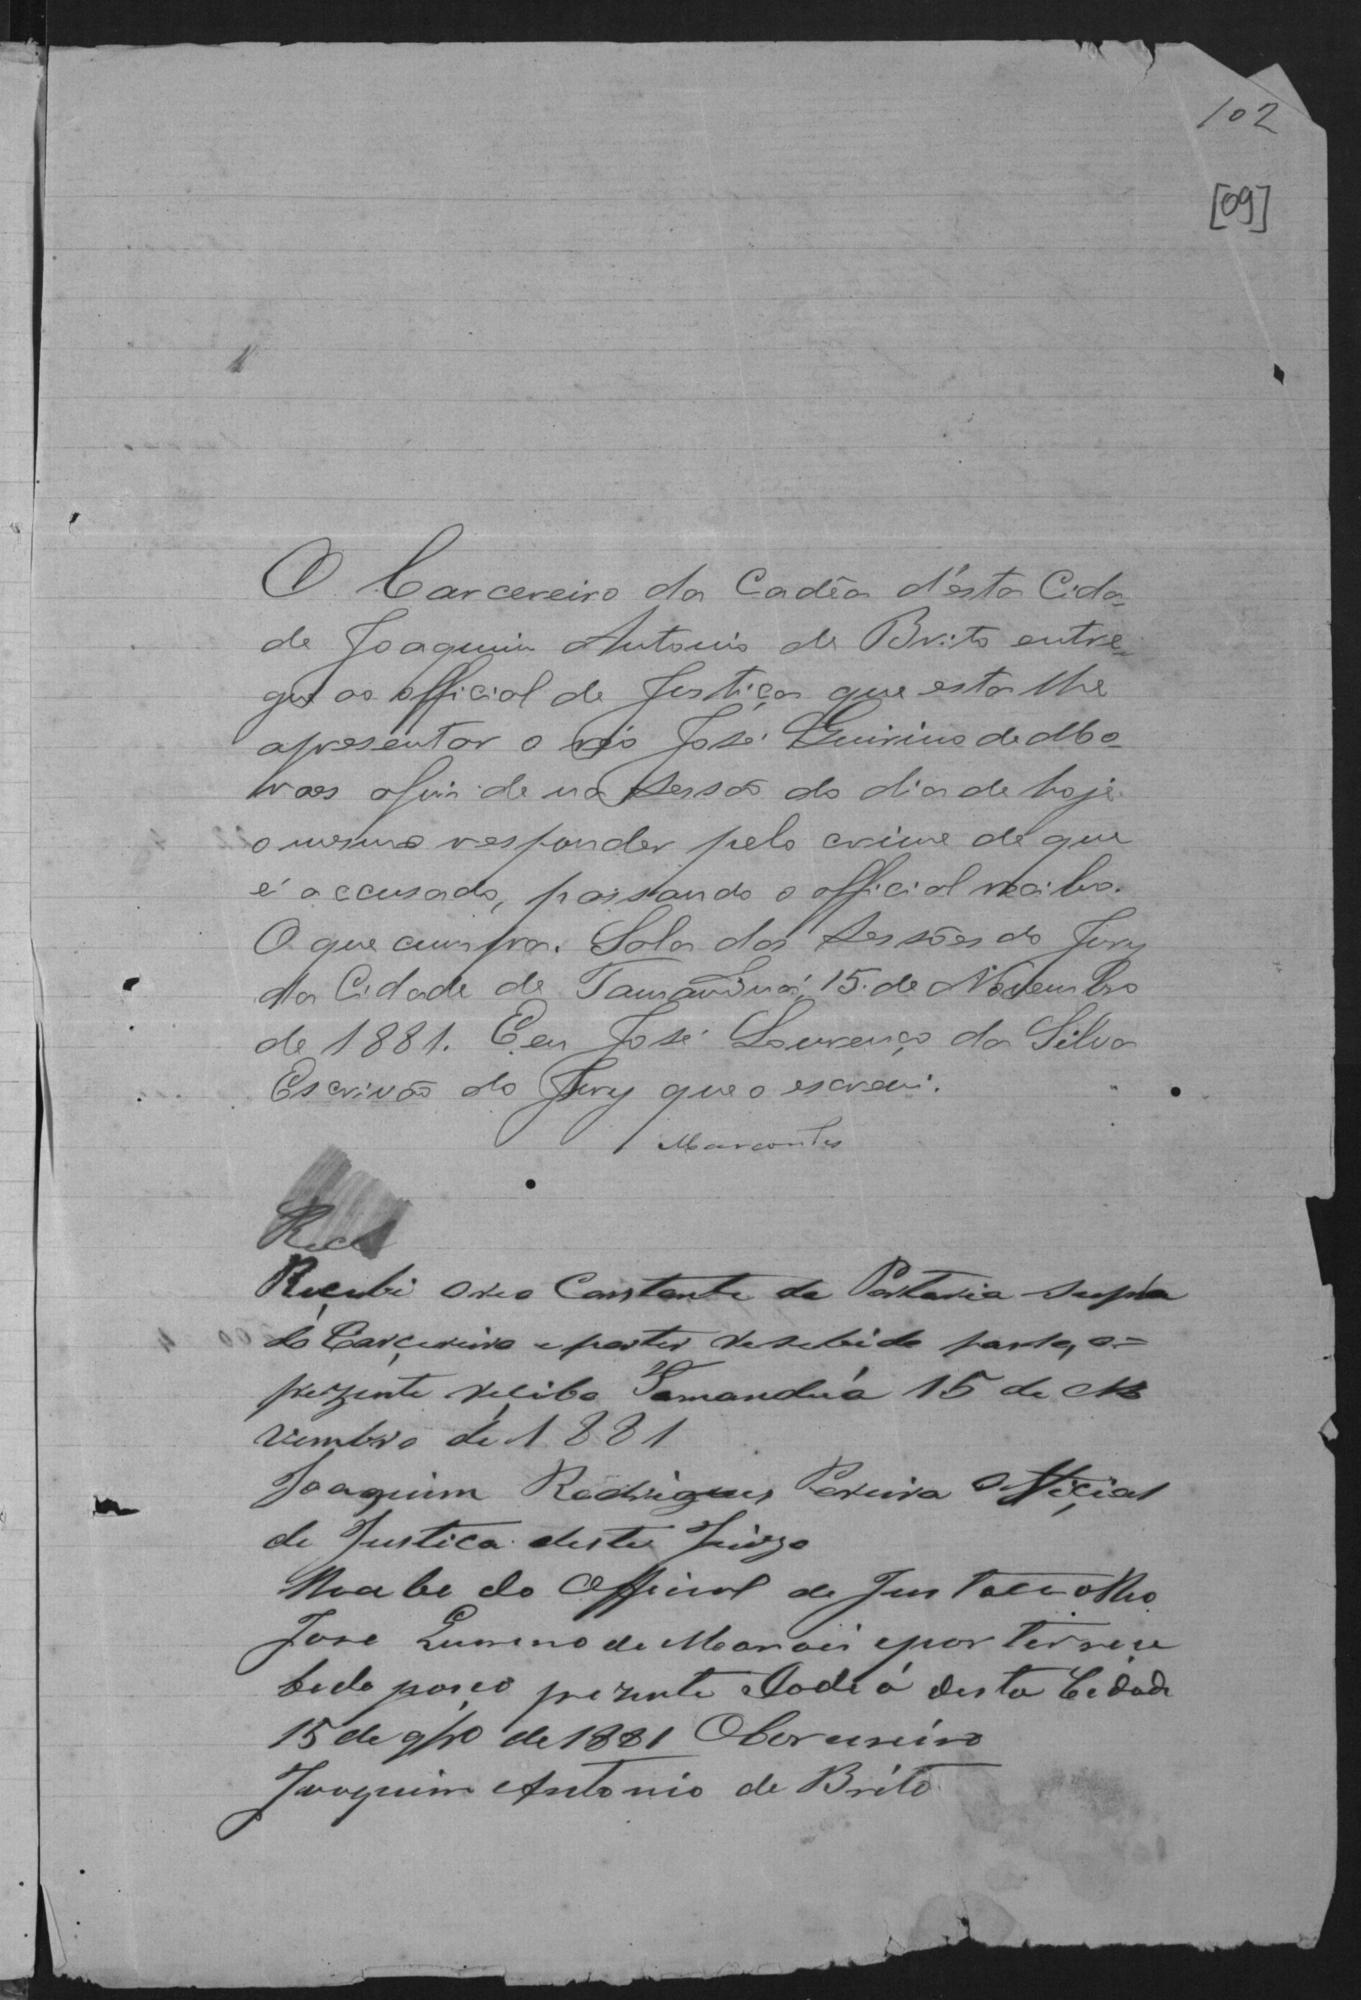 102
[09]
O Carcereiro da Cadêa d'esta Cida-
de Joaquim Antonio de Brito entre-
gue ao official de Justiça que esta lhe
apresentar o reo José Guirino de Mo-
raes afim de na sessão do dia de hoje
o mesmo responder pelo crime de que
é accusado, passando o official recibo.
O que cumpra. Sala das Sessões do Jury
da Cidade de Tamanduá, 15 de Novembro
de 1881. E eu José Lourenço da Silva
Escrivão do Jury que o escrevi.
Marcontes
Rece
Recebi oreo Constante da Portaria supra
do Carçereiro eporter resebido parto, o=
prezente reçibo Tamanduá 15 de No
vembro de 1881
Joaquim Rodrigues Pereira Offiçial
de Justica deste Juizo
do Official de
Jose de Moraes eporter rece
bedo paçeo prezente Cadeá desta Cidade
15 de 9bro de 1881 OCarsereiro
Joaquim Antonio de Brito